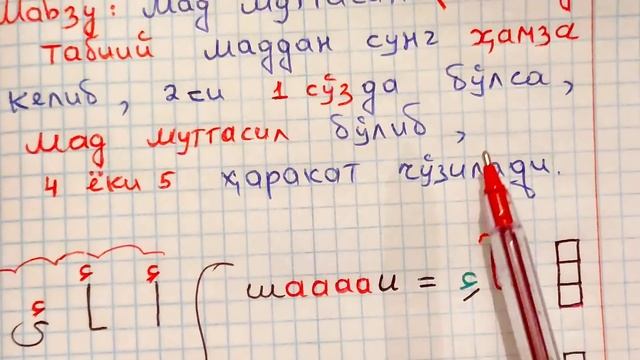 Мавзу: Мад муттасил
табиий маддан сунг ҳамза
келиб, 2си 1 сўзда бўлса,
мад муттасил бўлиб,
4 ёки 5 ҳаракат чўзилади.
шааааи =